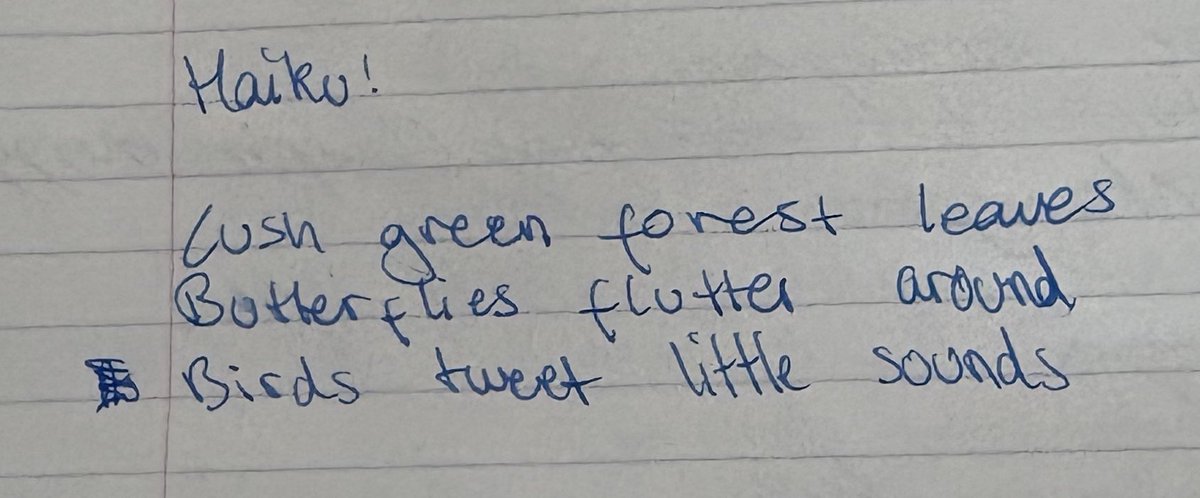 Haiku!
Lush green forest leaves
Butterflies flutter around
Birds tweet little sounds